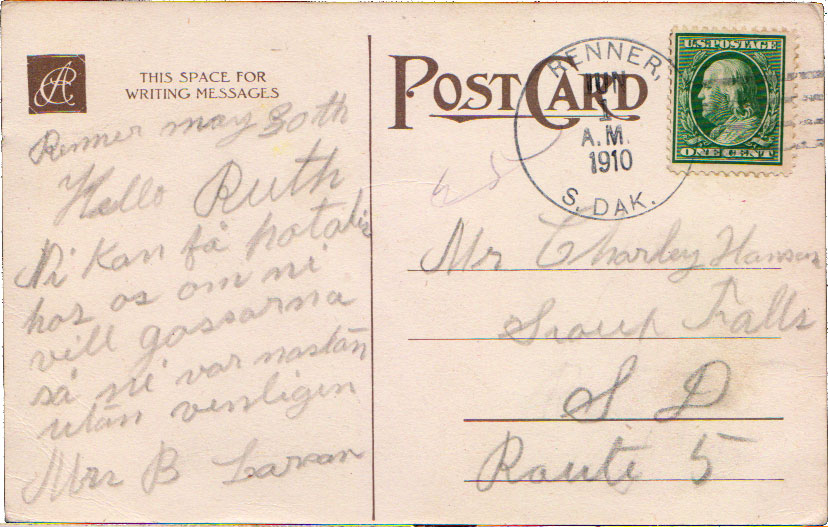 THIS SPACE FOR
WRITING MESSAGES
Renner may 30th
Hello Ruth
Ni kan få potatis
hos os om ni
vill gossarna
så ni var nastan
utan venligen
Mrs B Larson
POST CARD
RENNER,
JUN
1
A.M.
1910
S. DAK.
U.S. POSTAGE
ONE CENT
Mr Charley Hanson
Sioux Falls
S D
Route 5